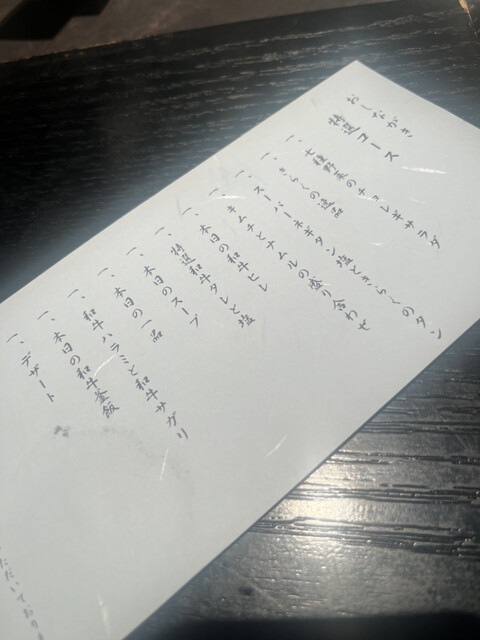 おしながき
特選コース
一、七種野菜のチョレギサラダ
一、きらくの逸品
一、スーパーネギタン塩ときらくのタン
一、キムチとナムルの盛り合わせ
一、本日の和牛ヒレ
一、特選和牛タレと塩
一、本日のスープ
一、本日の一品
一、和牛ハラミと和牛サガリ
一、本日の和牛釜飯
一、デザート
ただいておりま